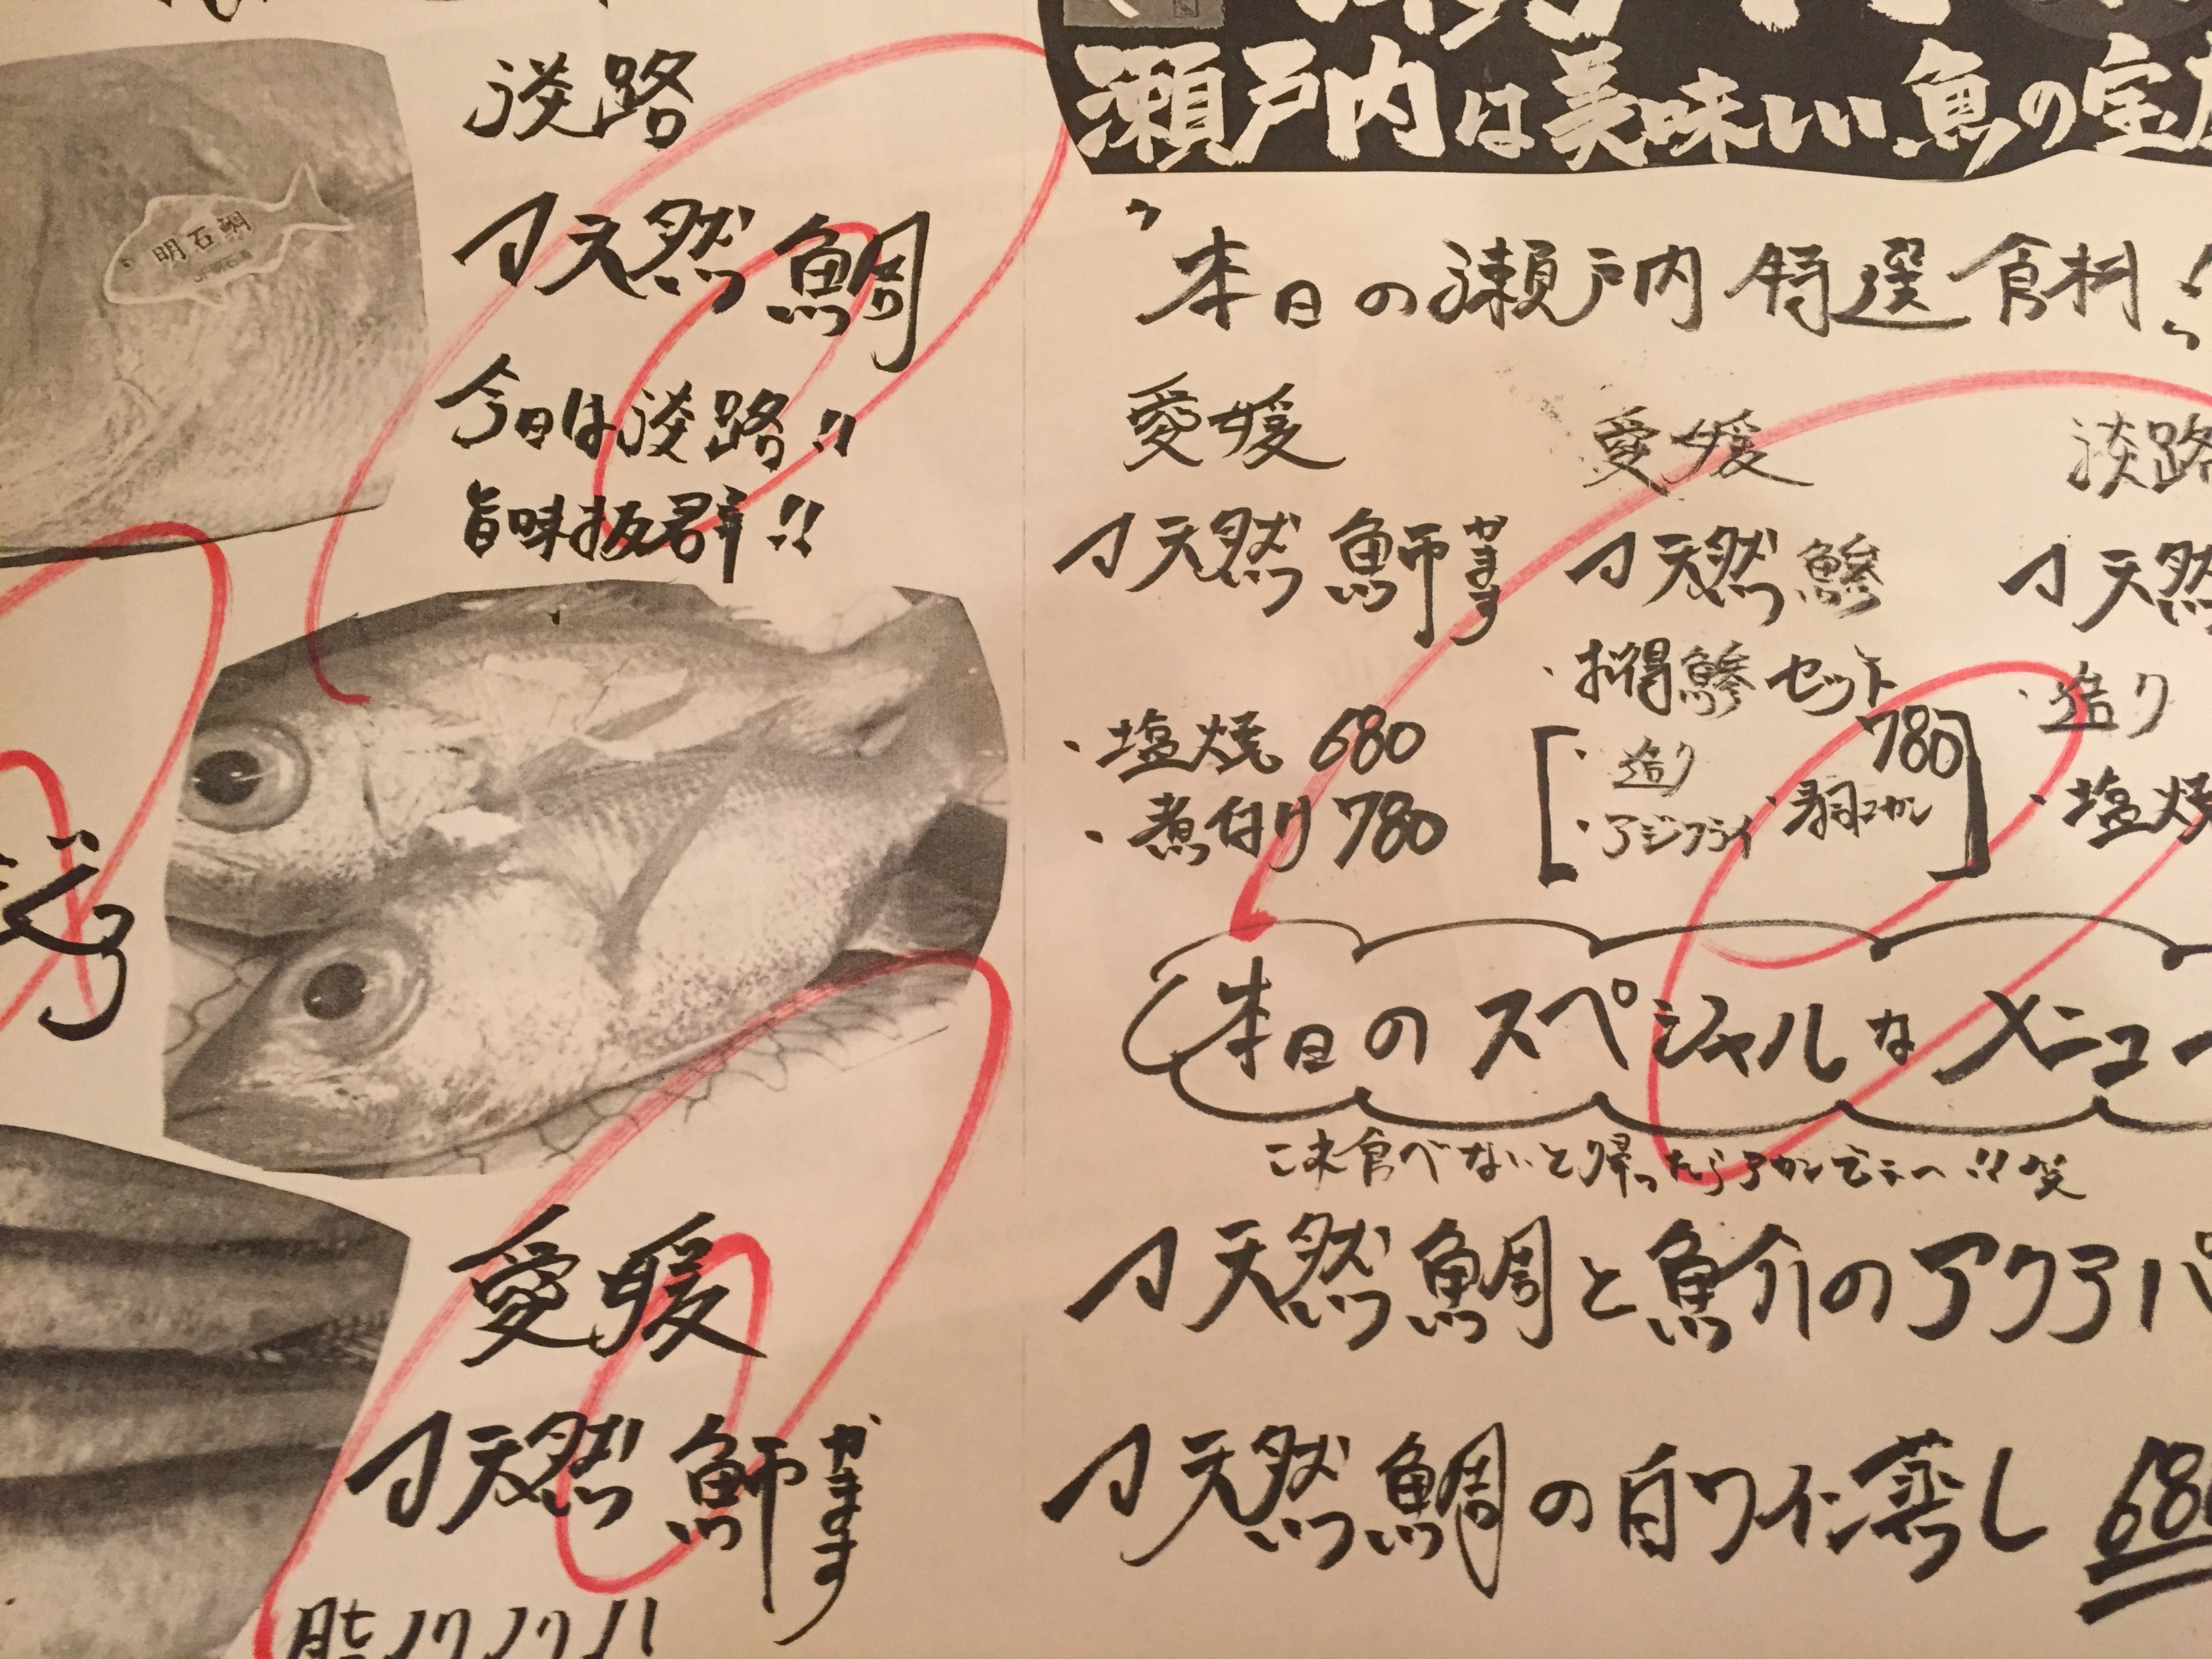 明石鯛
淡路
天然鯛
今日は淡路!!
旨味抜群!!
愛媛
天然魳かます
脂ノリノリ!!
瀬戸内は美味い魚の宝
"本日の瀬戸内特選食材
愛媛
天然魳かます
・塩焼 680
・煮付け 780
愛媛
天然鯵
・お得鯵セット
780
・造り
・アジフライ
淡路
天然
・造り
・塩焼
本日のスペシャルなメニュー
これ食べないと帰ったらアカンで〜!!笑
天然鯛と魚介のアクアパ
天然鯛の白ワイン蒸し 680